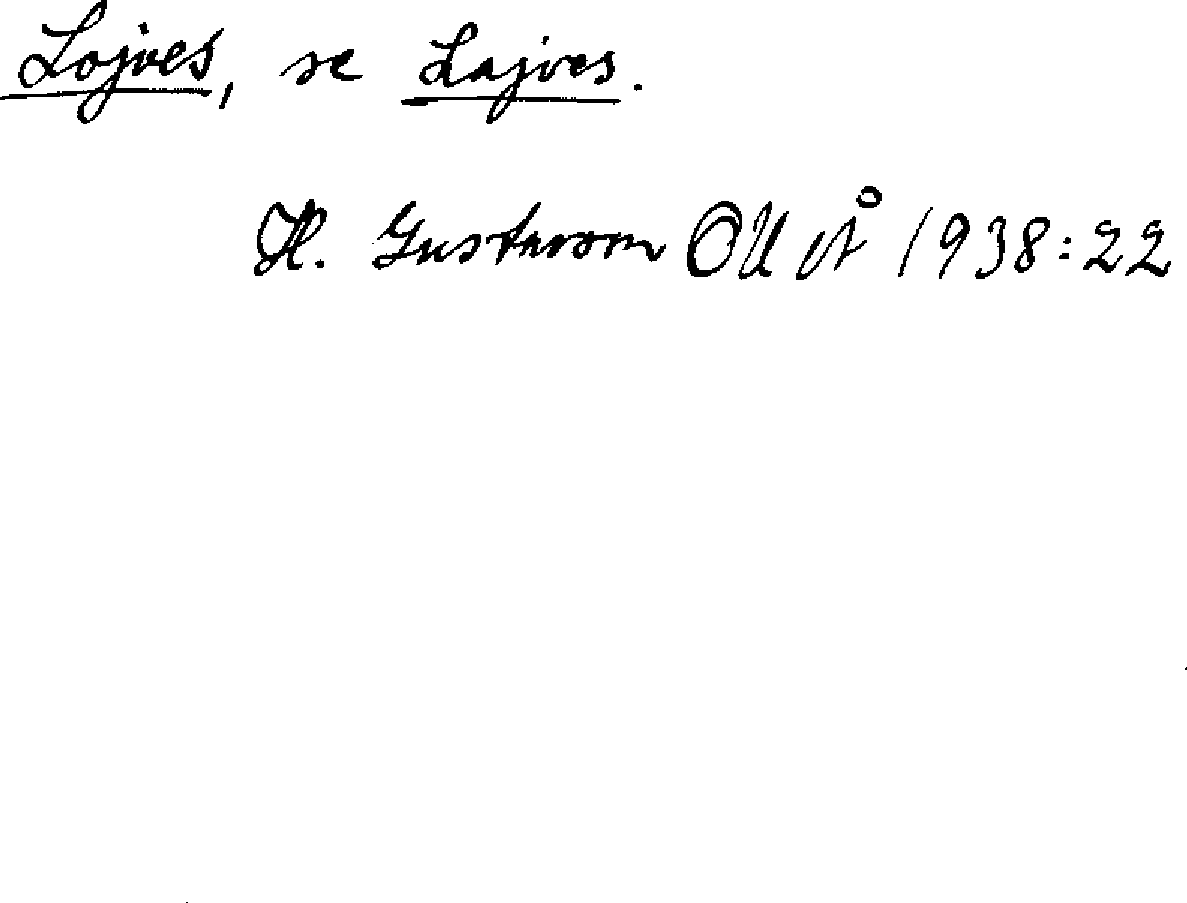 Lojves, se Lajves.
H. Gustavson OUÅ 1938:22